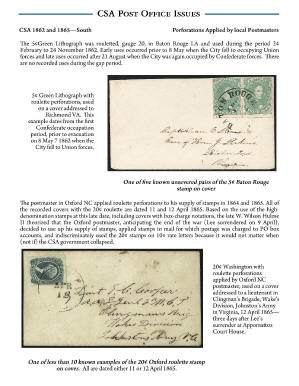 CSA POST OFFICE ISSUES
CSA 1862 and 1865—South
Perforations Applied by local Postmasters
The 5¢Green Lithograph was rouletted, gauge 20, in Baton Rouge LA and used during the period 24
February to 24 November 1862. Early uses occurred prior to 8 May when the City fell to occupying Union
forces and late uses occurred after 21 August when the City was again occupied by Confederate forces. There
are no recorded uses during the gap period.
5¢ Green Lithograph with
roulette perforations, used
on a cover addressed to
Richmond VA. This
example dates from the first
Confederate occupation
period, prior to evacuation
on 8 May 7 1862 when the
City fell to Union forces.
ROUGE
One of five known unsevered pairs of the 5¢ Baton Rouge
stamp on cover
The postmaster in Oxford NC applied roulette perforations to his supply of stamps in 1864 and 1865. All of
the recorded covers with the 20¢ roulette are dated 11 and 12 April 1865. Based on the use of the high-
denomination stamps at this late date, including covers with box-charge notations, the late W. Wilson Hulme
II theorized that the Oxford postmaster, anticipating the end of the war (Lee surrendered on 9 April),
decided to use up his supply of stamps, applied stamps in mail for which postage was charged to PO box
accounts, and indiscriminately used the 20¢ stamps on 10¢ rate letters because it would not matter when
(not if) the CSA government collapsed.
20¢ Washington with
roulette perforations
applied by Oxford NC
postmaster, used on a cover
addressed to a lieutenant in
Clingman's Brigade, Wake's
Division, Johnston's Army
in Virginia, 12 April 1865—
three days after Lee's
surrender at Appomattox
Court House.
One of less than 10 known examples of the 20¢ Oxford roulette stamp
on cover. All are dated either 11 or 12 April 1865.